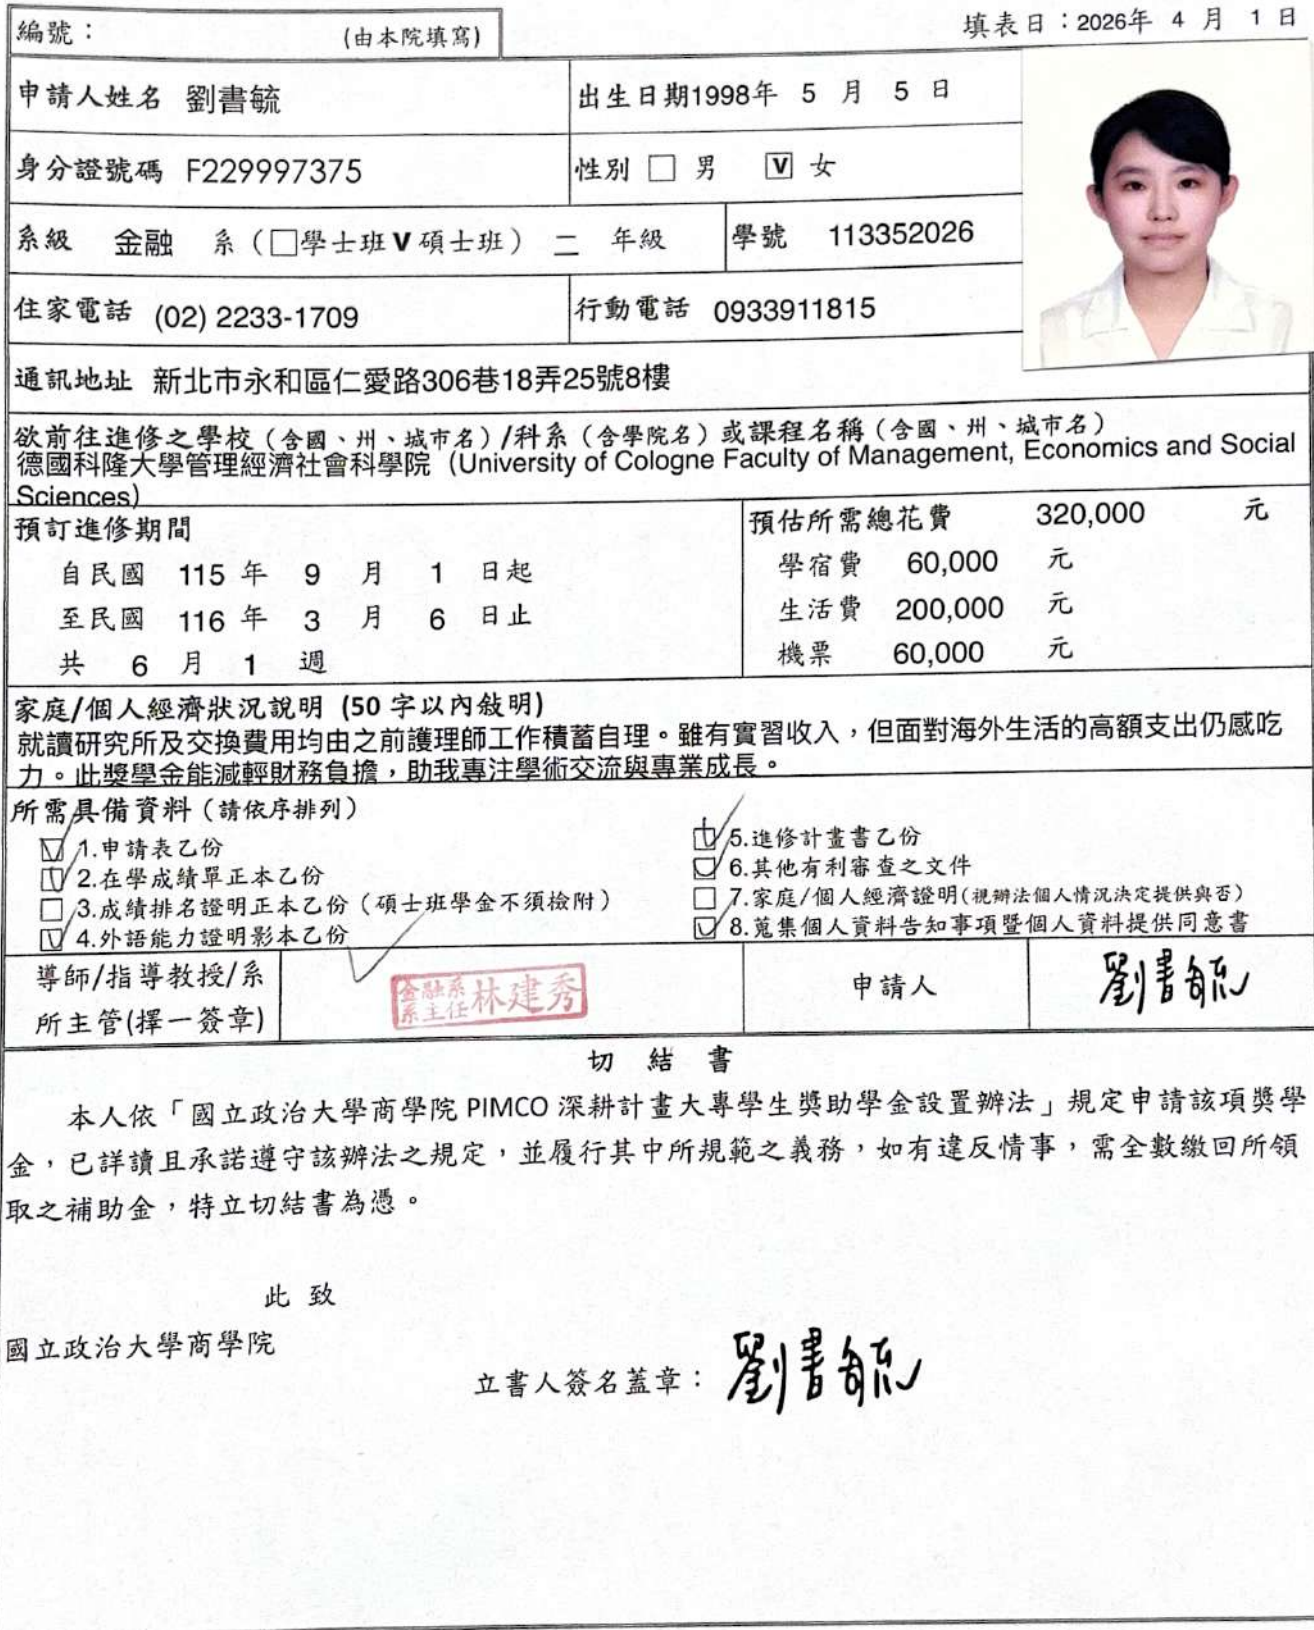 編號： (由本院填寫) 填表日：2026年 4 月 1 日
申請人姓名 劉書毓 出生日期1998年 5 月 5 日
身分證號碼 F229997375 性別 □ 男 V 女
系級 金融 系（□學士班 V 碩士班）二 年級 學號 113352026
住家電話 (02) 2233-1709 行動電話 0933911815
通訊地址 新北市永和區仁愛路306巷18弄25號8樓
欲前往進修之學校（含國、州、城市名）/科系（含學院名）或課程名稱（含國、州、城市名）
德國科隆大學管理經濟社會科學院（University of Cologne Faculty of Management, Economics and Social
Sciences)
預訂進修期間 預估所需總花費 320,000 元
自民國 115 年 9 月 1 日起 學宿費 60,000 元
至民國 116 年 3 月 6 日止 生活費 200,000 元
共 6 月 1 週 機票 60,000 元
家庭/個人經濟狀況說明 (50 字以內敍明)
就讀研究所及交換費用均由之前護理師工作積蓄自理。雖有實習收入，但面對海外生活的高額支出仍感吃
力。此獎學金能減輕財務負擔，助我專注學術交流與專業成長。
所需具備資料（請依序排列）
☑ 1.申請表乙份 ☑ 5.進修計畫書乙份
☑ 2.在學成績單正本乙份 ☑ 6.其他有利審查之文件
□ 3.成績排名證明正本乙份（碩士班學金不須檢附） □ 7.家庭/個人經濟證明(視辦法個人情況決定提供與否)
☑ 4.外語能力證明影本乙份 ☑ 8.蒐集個人資料告知事項暨個人資料提供同意書
導師/指導教授/系
所主管(擇一簽章) 金融系 系主任 林建秀 申請人 劉書毓
切 結 書
本人依「國立政治大學商學院 PIMCO 深耕計畫大專學生獎助學金設置辦法」規定申請該項獎學
金，已詳讀且承諾遵守該辦法之規定，並履行其中所規範之義務，如有違反情事，需全數繳回所領
取之補助金，特立切結書為憑。
此 致
國立政治大學商學院
立書人簽名蓋章：劉書毓